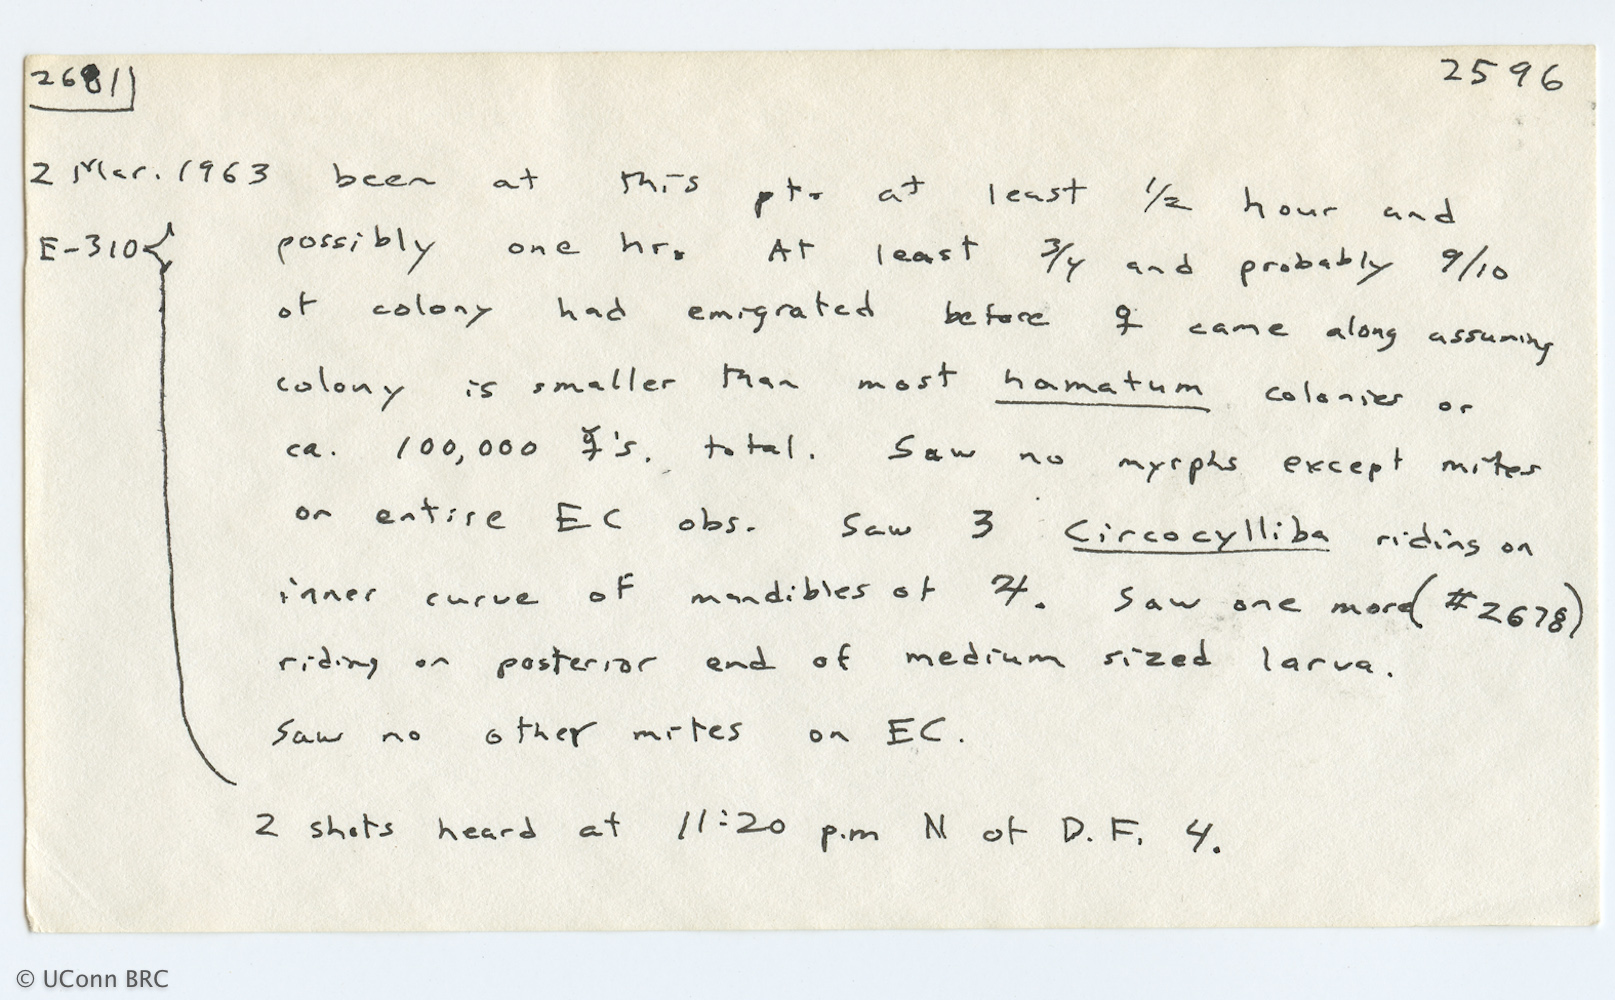 2681
2596
2 Mar. 1963 been at this pt. at least 1/2 hour and
E-310 possibly one hr. At least 3/4 and probably 9/10
of colony had emigrated before ♀ came along assuming
colony is smaller than most hamatum colonies or
ca. 100,000 ☿'s. total. Saw no myrphs except mites
on entire EC obs. Saw 3 Circocylliba riding on
inner curve of mandibles of ♃. Saw one more (#2678)
riding on posterior end of medium sized larva.
Saw no other mites on EC.
2 shots heard at 11:20 p.m N of D.F. 4.
© UConn BRC